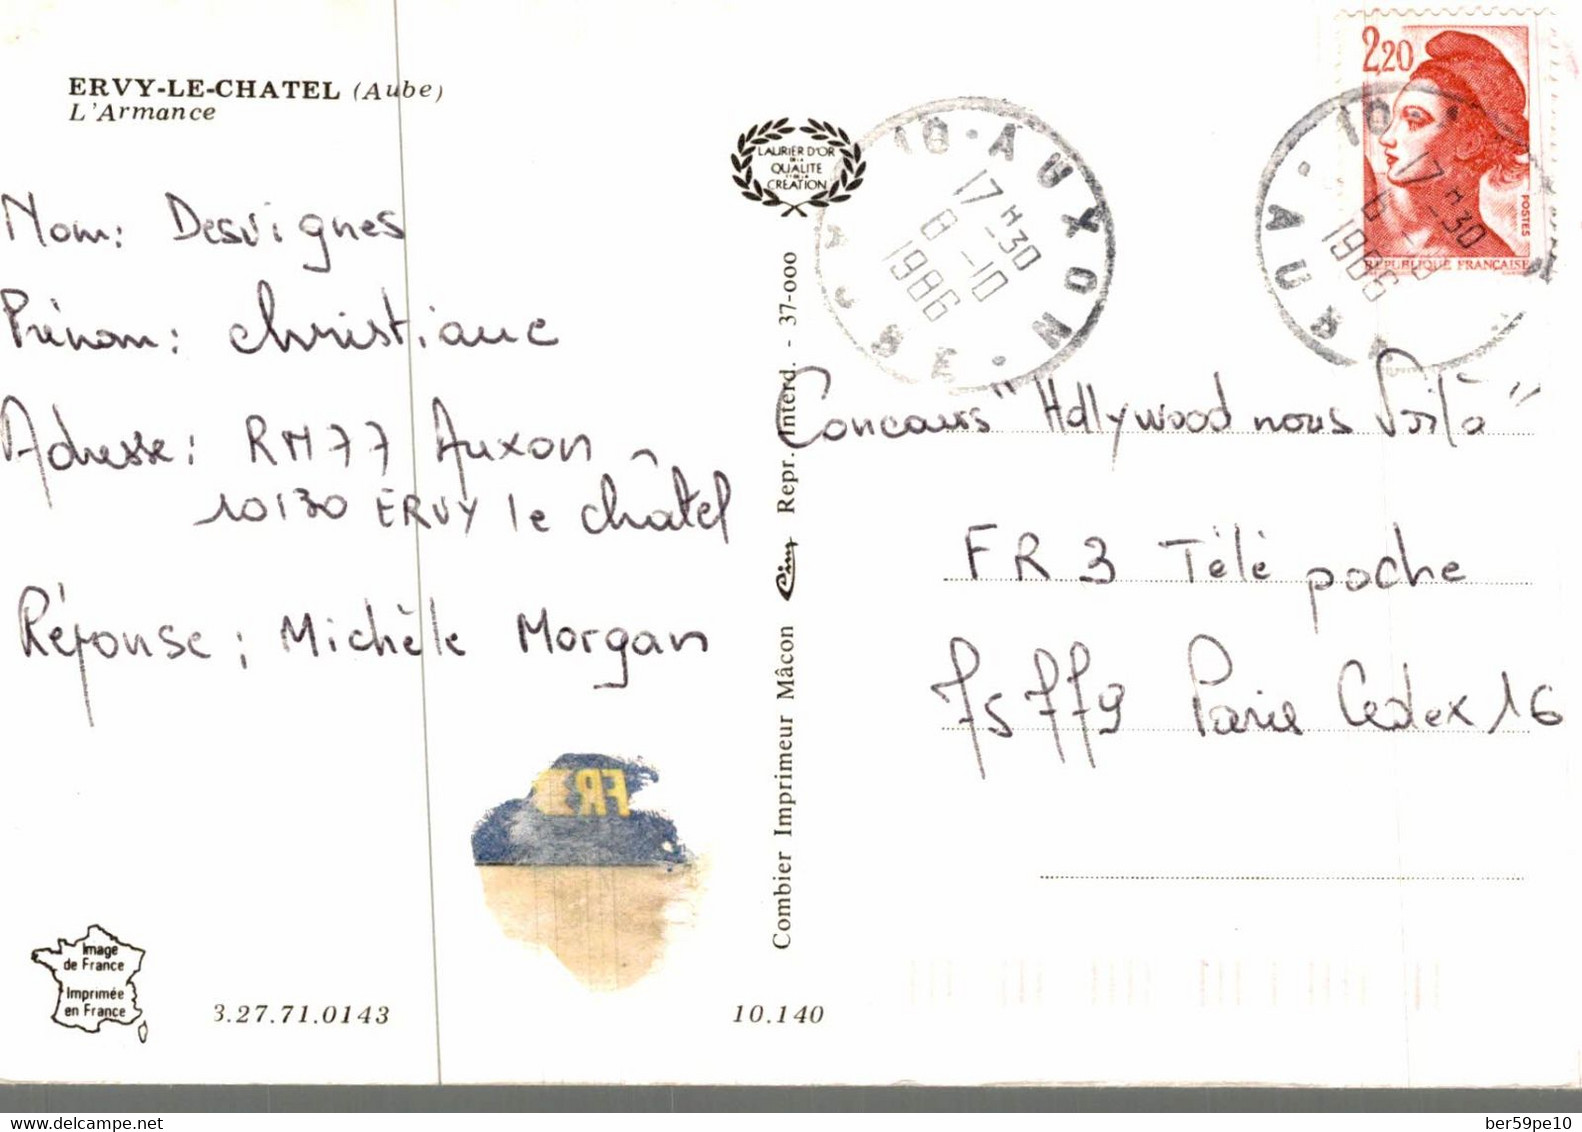 ERVY-LE-CHATEL (Aube)
L'Armance
Nom: Desvignes
Prénom: christiane
Adresse: RM77 Auxon
10130 ERVY le châtel
Réponse: Michèle Morgan
FR3
Image
de France
Imprimée
en France
3.27.71.0143
10.140
LAURIER D'OR
DE LA
QUALITE
ET DE LA
CREATION
Combier Imprimeur Mâcon Cim Repr. Interd. - 37-000
10 · AUXON · AUBE
17 H 30
8 -10
1986
2,20
POSTES
REPUBLIQUE FRANÇAISE
17 H 30
1986
Concours "Hollywood nous Voilà"
FR 3 Télé poche
75779 Paris Cedex 16
delcampe.net
ber59pe10